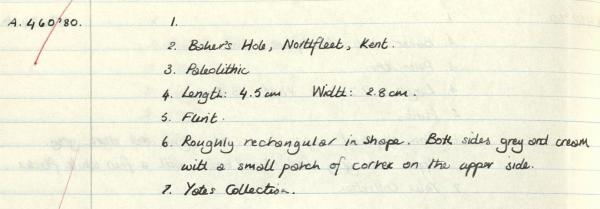 A. 460'80. 1.
2. Baker's Hole, Northfleet, Kent.
3. Paleolithic
4. Length: 4.5cm Width: 2.8cm.
5. Flint.
6. Roughly rectangular in shape. Both sides grey and cream
with a small patch of cortex on the upper side.
7. Yates Collection.